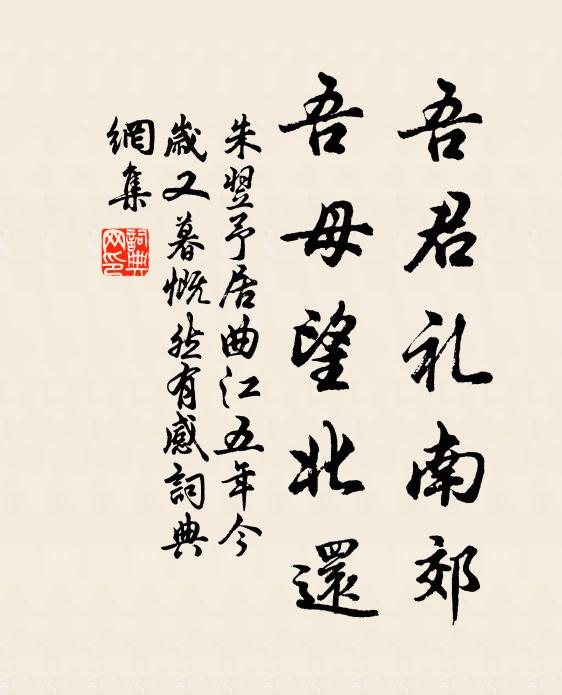 吾君礼南郊
吾母望北還
朱翌予居曲江五年今
歲又暮慨然有感詞典
網集
詞典網印